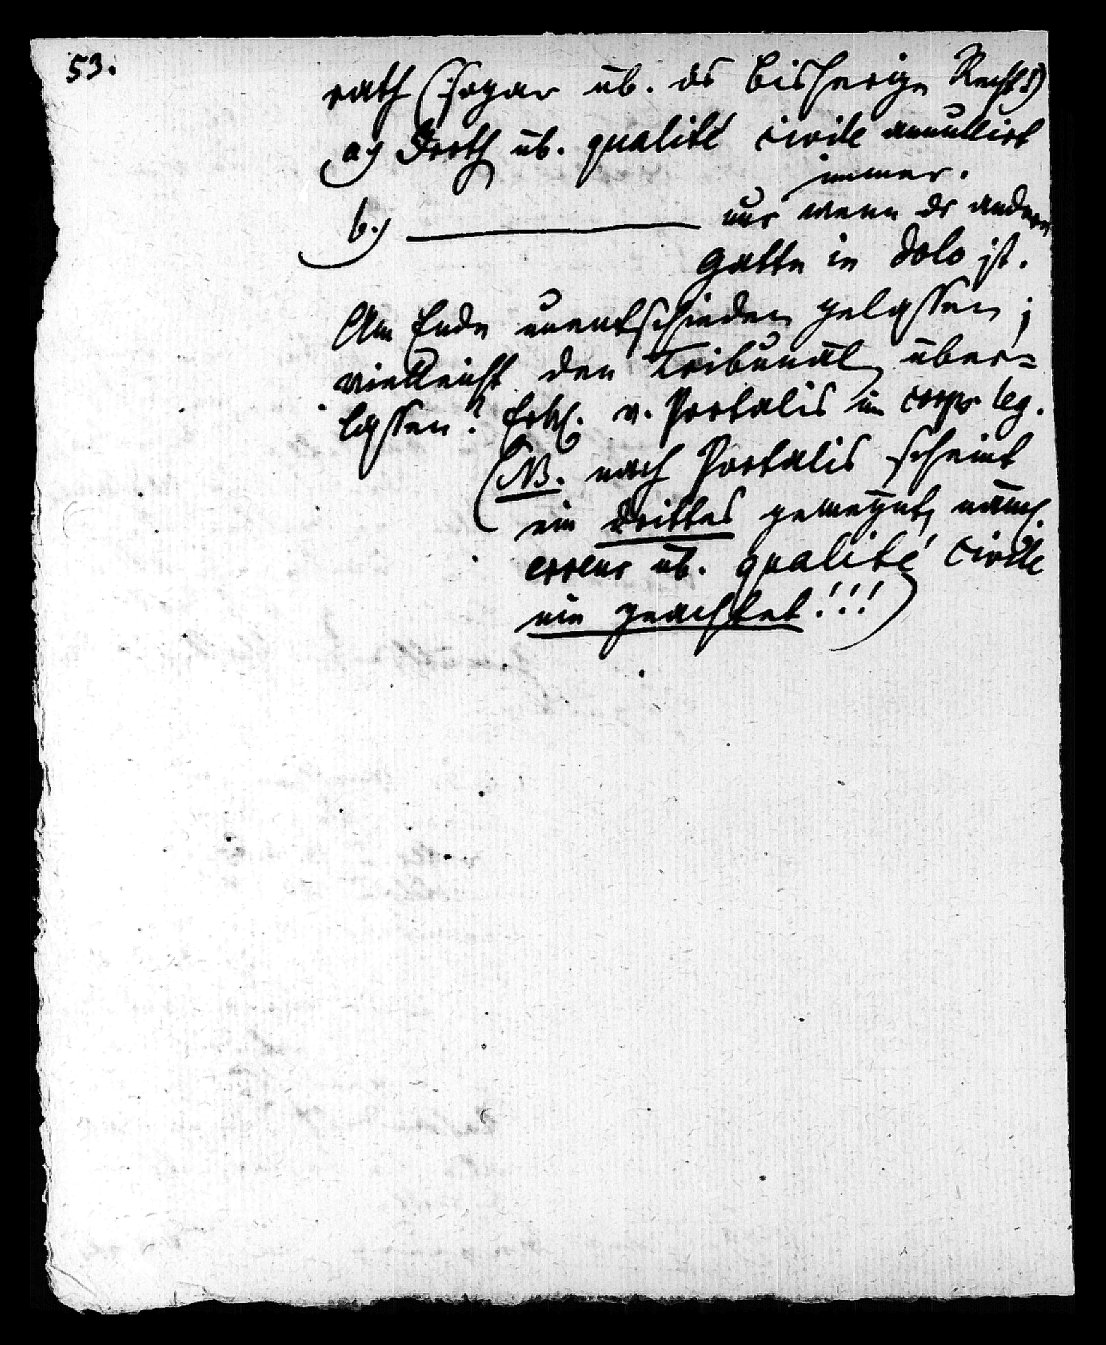 53.
rath (sogar üb. ds bisherige Recht)
a) Irrth. üb. qualité civile annullirt
immer.
b.) ——— nur wenn dr andere
Gatte in dolo ist.
Am Ende unentschieden gelassen;
vielleicht den Tribunäl. über-
lassen? v. Portalis im corps leg.
(NB. nach Portalis scheint
ein Drittes gemeynt, näml.
erreur üb. qualité civile
nie geachtet!!!)